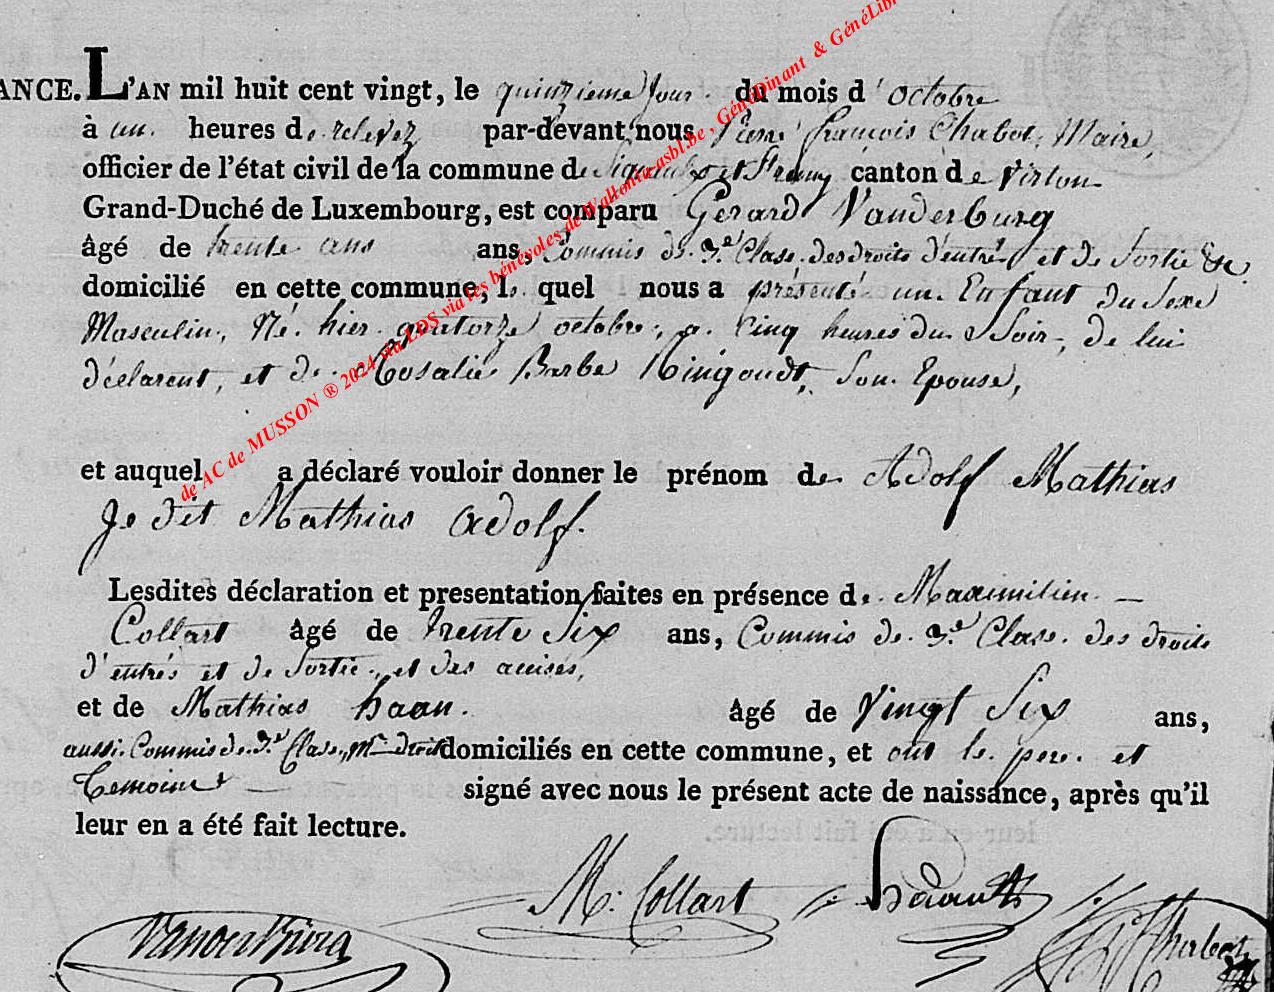 ANCE. L'AN mil huit cent vingt, le quinzieme jour du mois d'octobre
à un heures de relevez par-devant nous Pierre françois Chabot, Maire,
officier de l'état civil de la commune de et canton de Virton
Grand-Duché de Luxembourg, est comparu Gerard Vanderburg
âgé de trente ans ans, Commis de 3.e Clase des droits d'entrés et de Sortie &c
domicilié en cette commune, le quel nous a présenté un Enfant du Sexe
Masculin, Né hier quatorze octobre, a Cinq heures du Soir, de lui
déclarent, et de Rosalie Barbe Ringoudt, Son Epouse,
et auquel a déclaré vouloir donner le prénom de Adolf Mathias
Je dit Mathias Adolf.
Lesdites déclaration et presentation faites en présence de Maximilien
Collart âgé de trente Six ans, Commis de 3.e Clase des droits
d'entrés et de Sortie, et des accises,
et de Mathias haan. âgé de Vingt Six ans,
aussi Commis de 3.e Clase, droit domiciliés en cette commune, et ont le pere et
temoins signé avec nous le présent acte de naissance, après qu'il
leur en a été fait lecture.
M. Collart
Chabot
de AC de MUSSON ® 2024 via LDS via les bénévoles de Wallonia-asbl.be, GénéDinant & GénéLibr